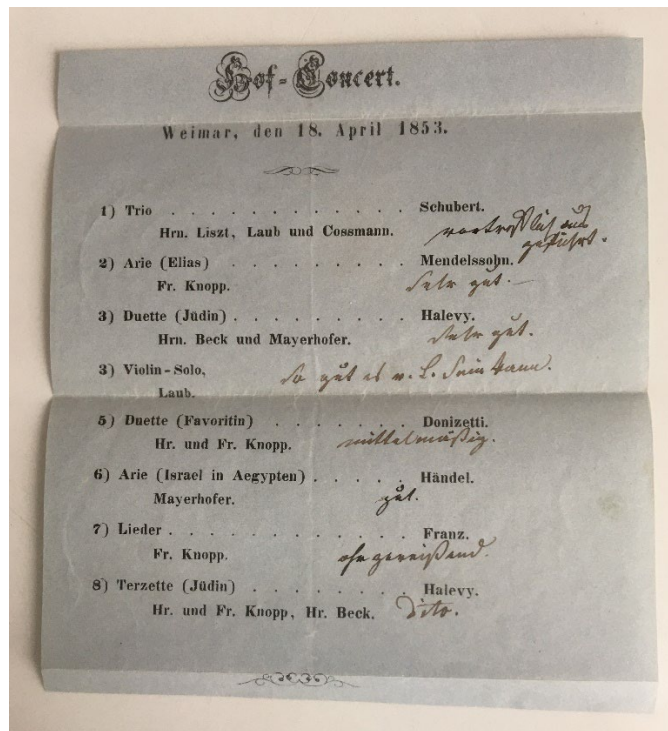 Hof-Concert.
Weimar, den 18. April 1853.
1) Trio . . . . . . . . . . . . Schubert.
Hrn. Liszt, Laub und Cossmann. vortrefflich aus
geführt.
2) Arie (Elias) . . . . . . . . . Mendelssohn.
Fr. Knopp. Sehr gut.
3) Duette (Jüdin) . . . . . . . . . Halevy.
Hrn. Beck und Mayerhofer. Sehr gut.
3) Violin-Solo, so gut es v. L. sein kann.
Laub.
5) Duette (Favoritin) . . . . . . . Donizetti.
Hr. und Fr. Knopp. mittelmäßig.
6) Arie (Israel in Aegypten) . . . . . Händel.
Mayerhofer. gut.
7) Lieder . . . . . . . . . . . . Franz.
Fr. Knopp. ohrzerreißend.
8) Terzette (Jüdin) . . . . . . . . Halevy.
Hr. und Fr. Knopp, Hr. Beck. Dito.